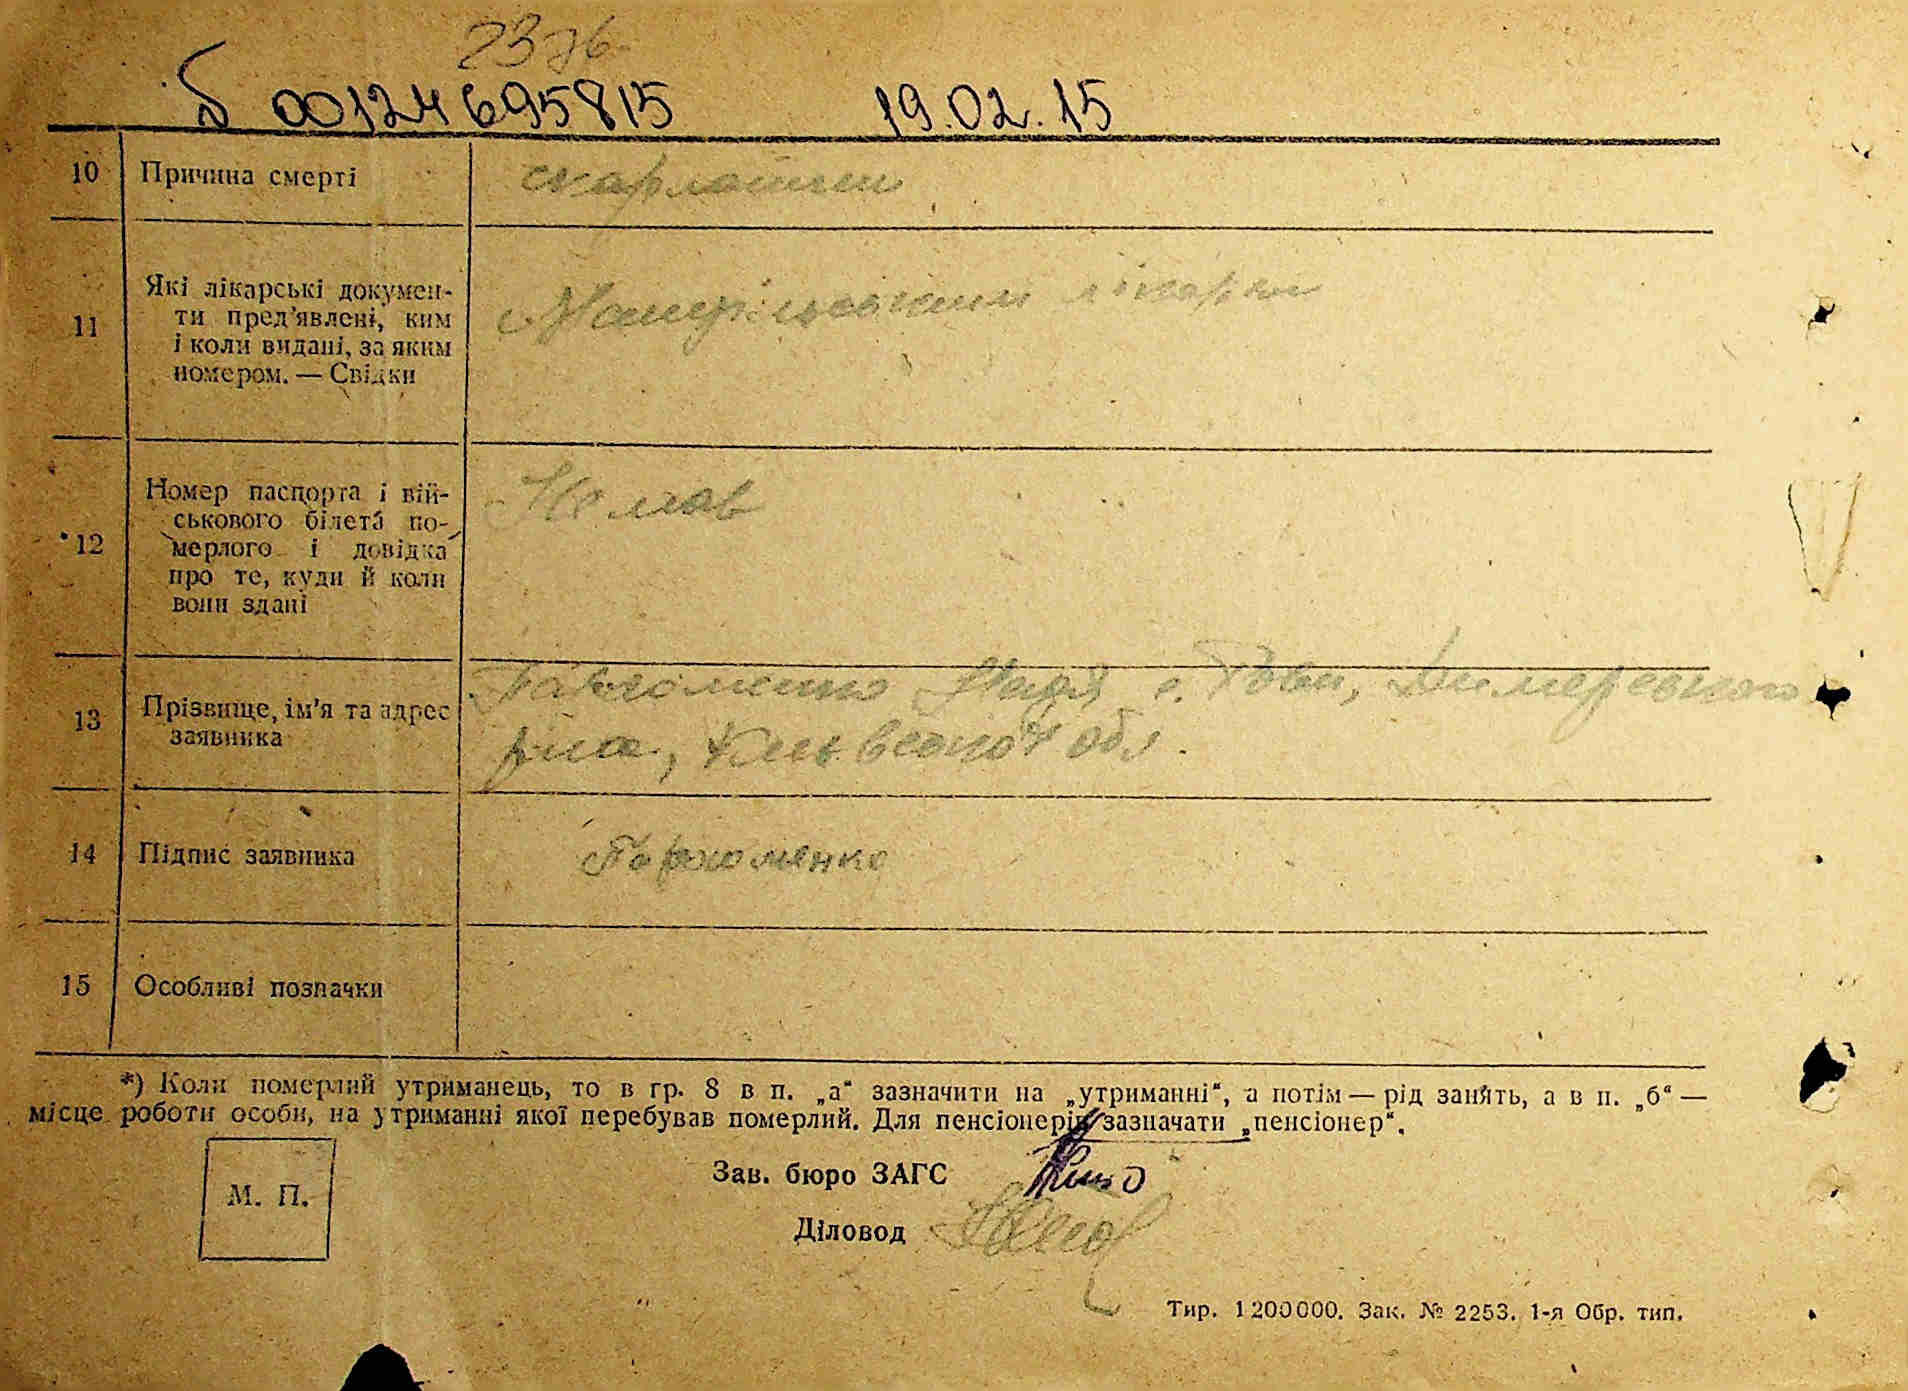 2376
00124695815 19.02.15
10 Причина смерті скарлатини
11 Які лікарські докумен-
ти пред'явлені, ким
і коли видані, за яким
номером. — Свідки
лікарем
12 Номер паспорта і вій-
ськового білета по-
мерлого і довідка
про те, куди й коли
вони здані
Немає
13 Прізвище, ім'я та адрес
заявника
Пархоменко Надя с. Димерського
р-на, Київської обл.
14 Підпис заявника Пархоменко
15 Особливі позначки
*) Коли померлий утриманець, то в гр. 8 в п. „а“ зазначити на „утриманні“, а потім — рід занять, а в п. „б“ —
місце роботи особи, на утриманні якої перебував померлий. Для пенсіонерів зазначати „пенсіонер“.
М. П.
Зав. бюро ЗАГС
Діловод
Тир. 1200000. Зак. № 2253. 1-я Обр. тип.